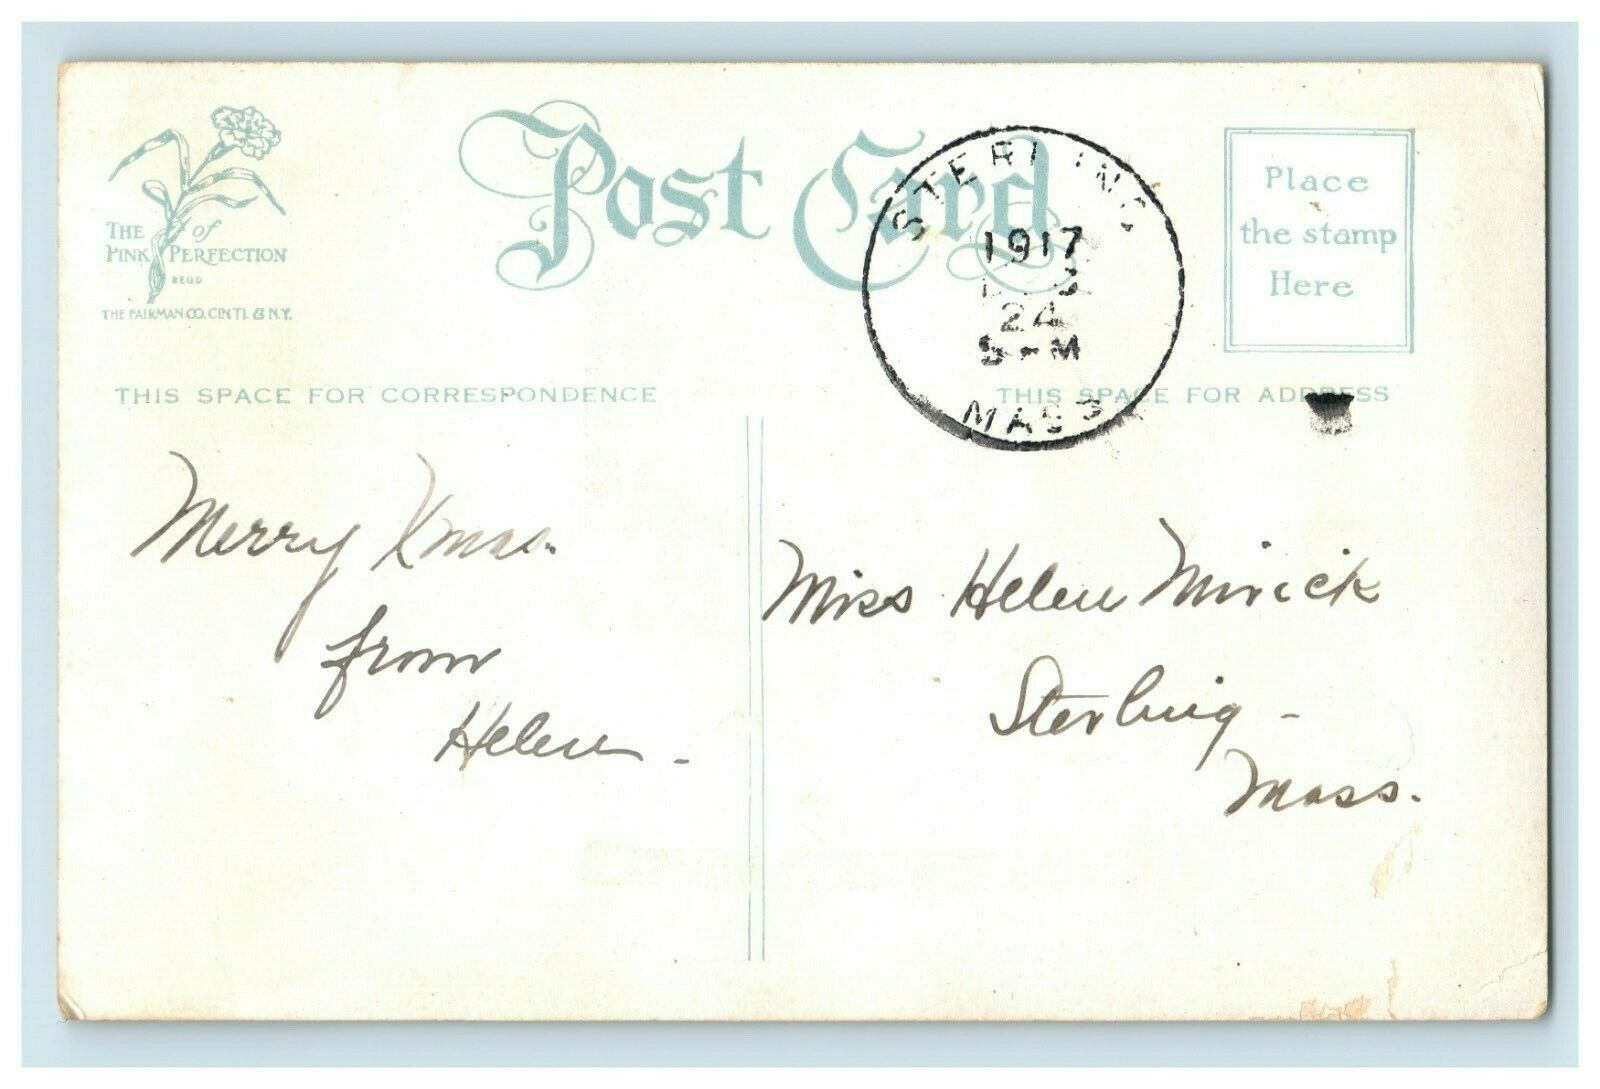 Post Card
THE of
PINK PERFECTION
REGD
THE FAIRMAN CO. CINTI. & N.Y.
STERLING
1917
24
MASS
Place
the stamp
Here
THIS SPACE FOR CORRESPONDENCE
THIS SPACE FOR ADDRESS
Merry Xmas.
from
Helen -
Miss Helen Mirick
Sterling -
Mass.